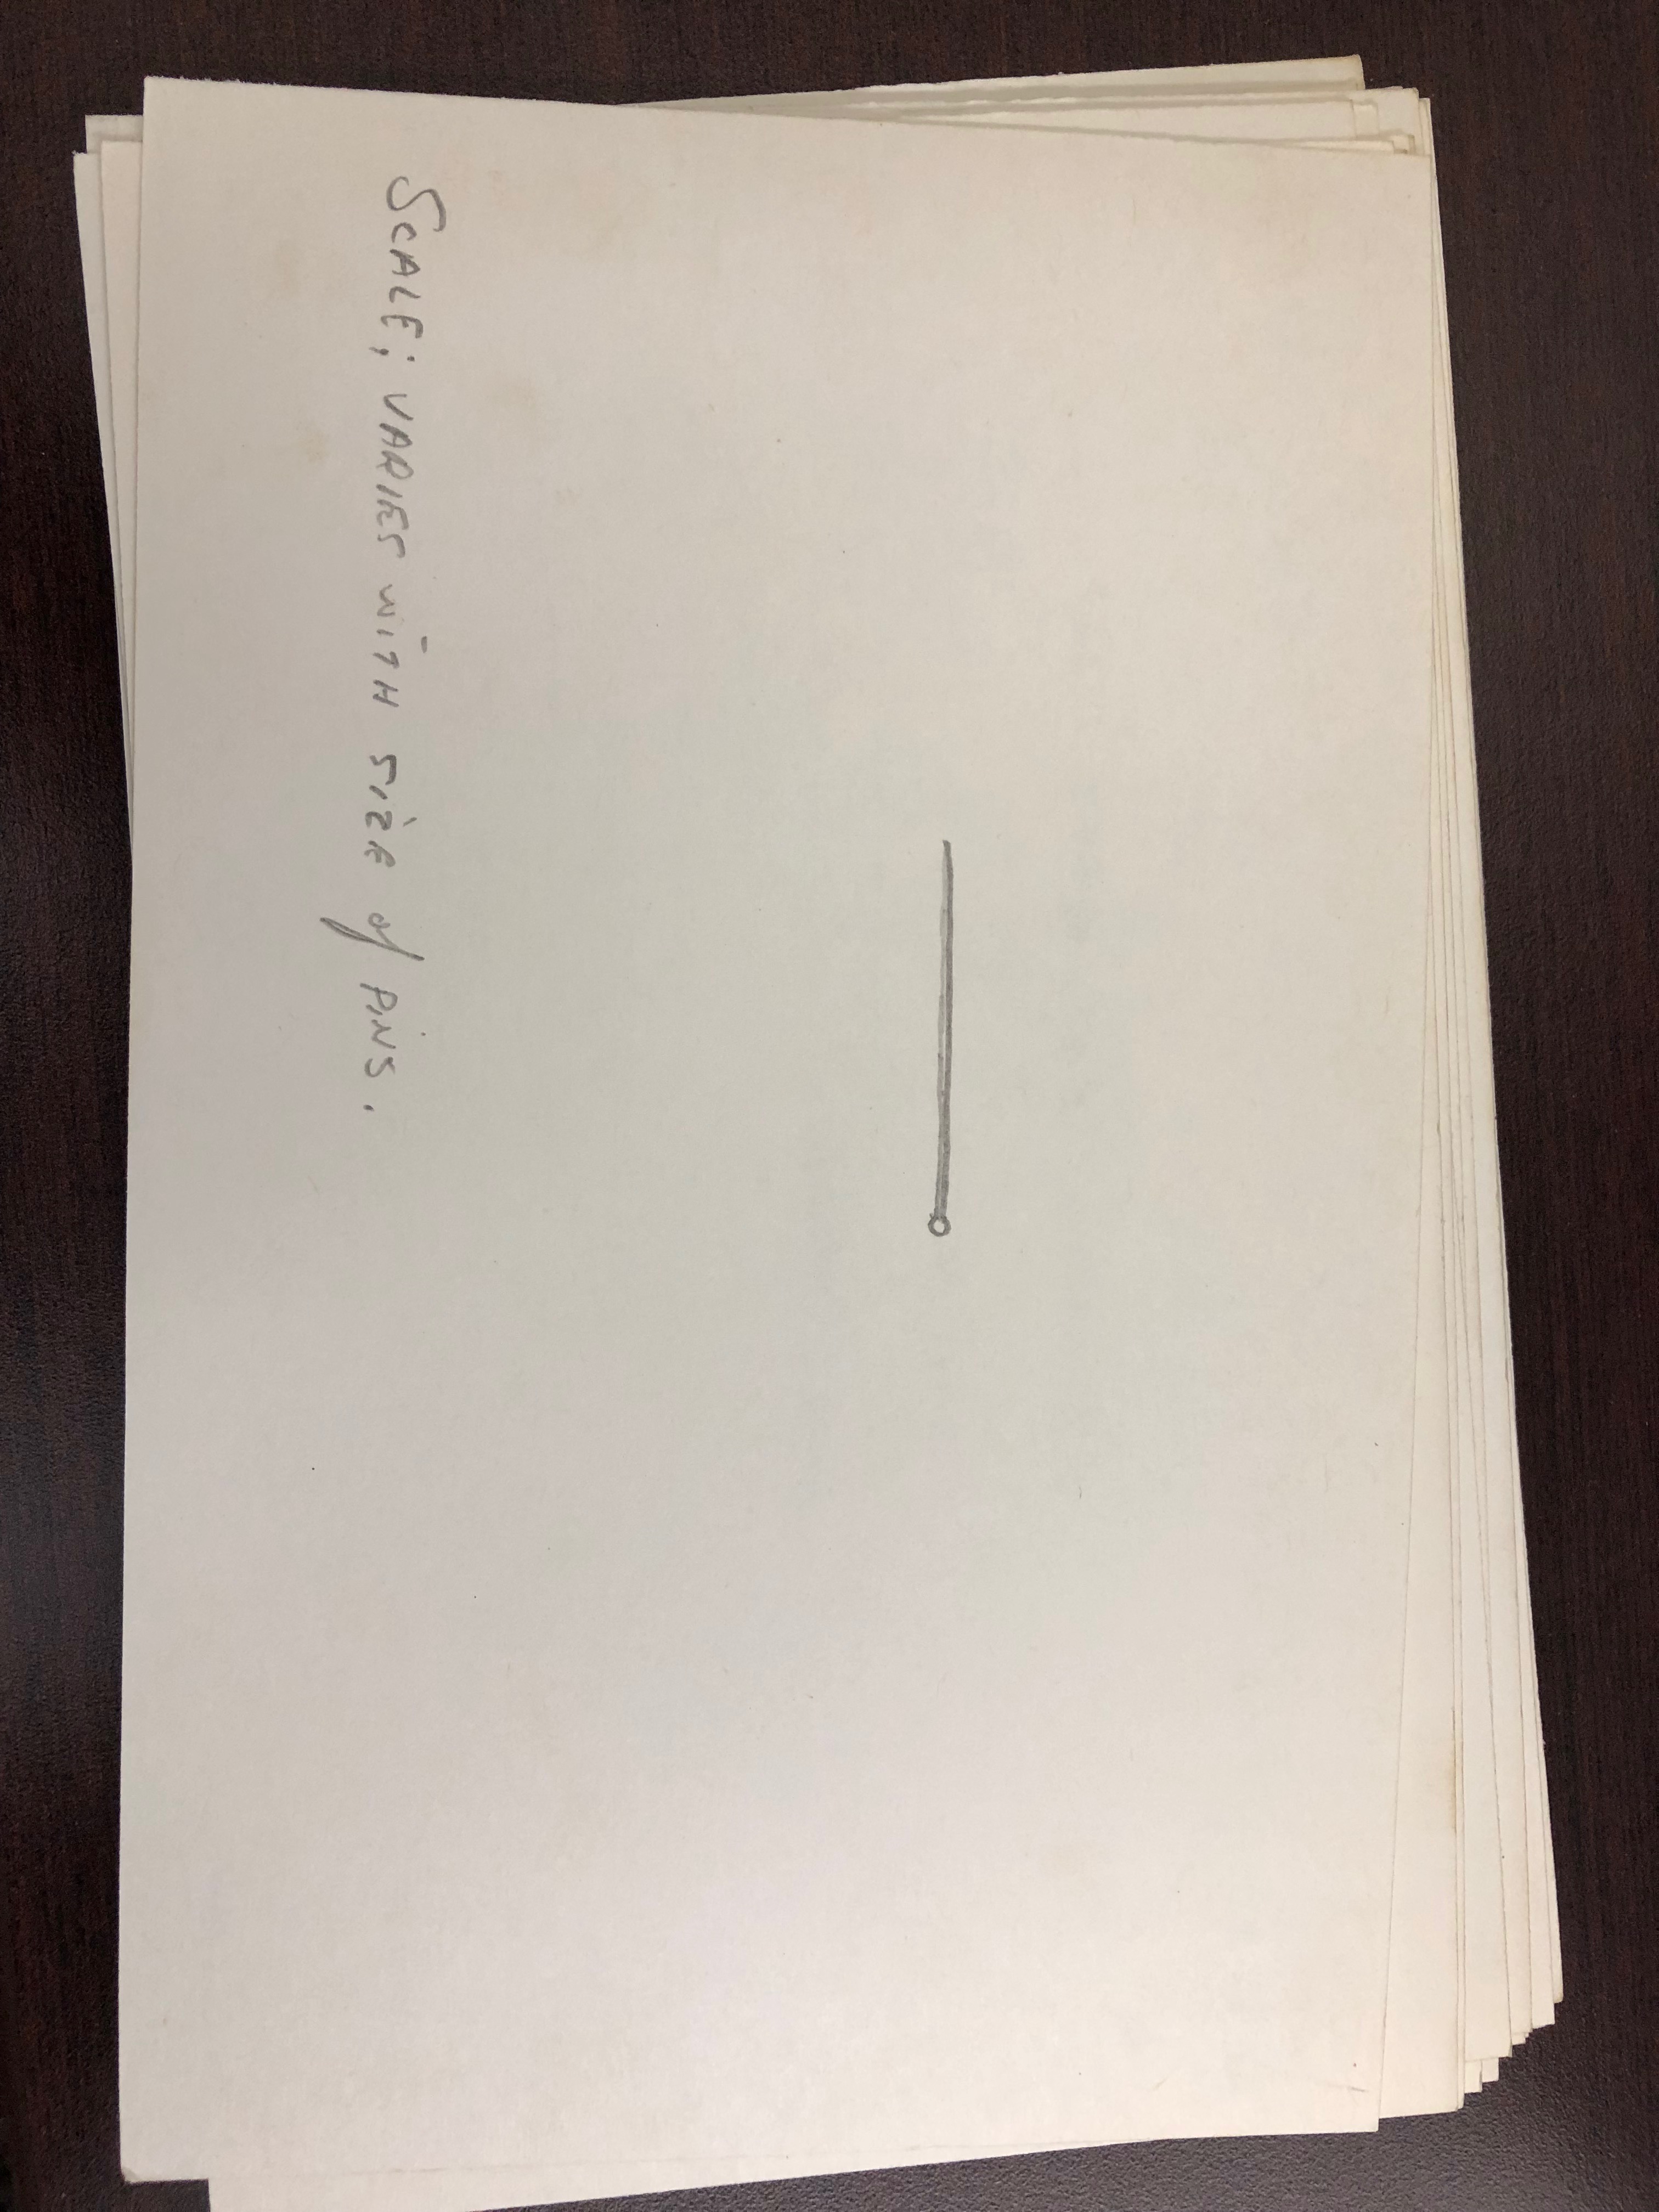 SCALE; VARIES WITH SIZE of PINS.